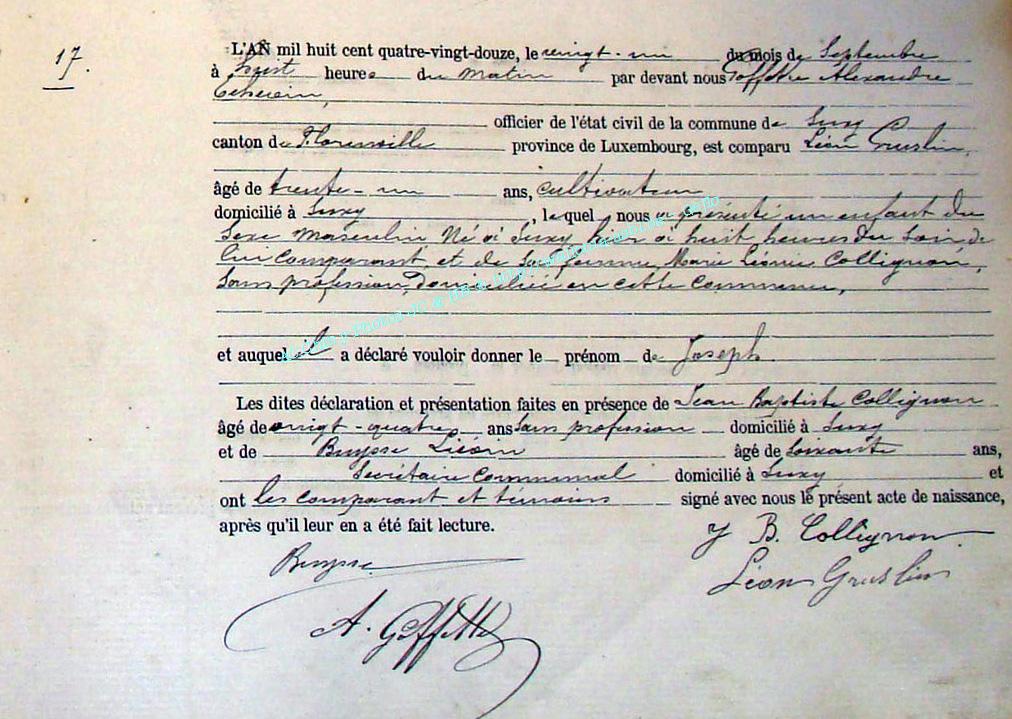 17.
L'AN mil huit cent quatre-vingt-douze, le vingt-un du mois de Septembre
à heures du Matin par devant nous Goffette Alexandre
officier de l'état civil de la commune de Suxy
canton de Florenville province de Luxembourg, est comparu Léon Gruslin,
âgé de trente-un ans, cultivateur
domicilié à Suxy, lequel nous a présenté un enfant du
Sexe Masculin Né à Suxy, hier à huit heures du Soir de
lui comparant, et de Sa femme, Marie Léonie Collignon,
Sans profession, domiciliée en cette Commune,
et auquel il a déclaré vouloir donner le prénom de Joseph.
Les dites déclaration et présentation faites en présence de Jean Baptiste Collignon
âgé de vingt-quatre ans Sans profession domicilié à Suxy
et de Buysse âgé de Soixante ans,
Secrétaire Communal domicilié à Suxy et
ont les comparant et témoins signé avec nous le présent acte de naissance,
après qu'il leur en a été fait lecture.
J B. Collignon
Buysse
Léon Gruslin
A. Goffette